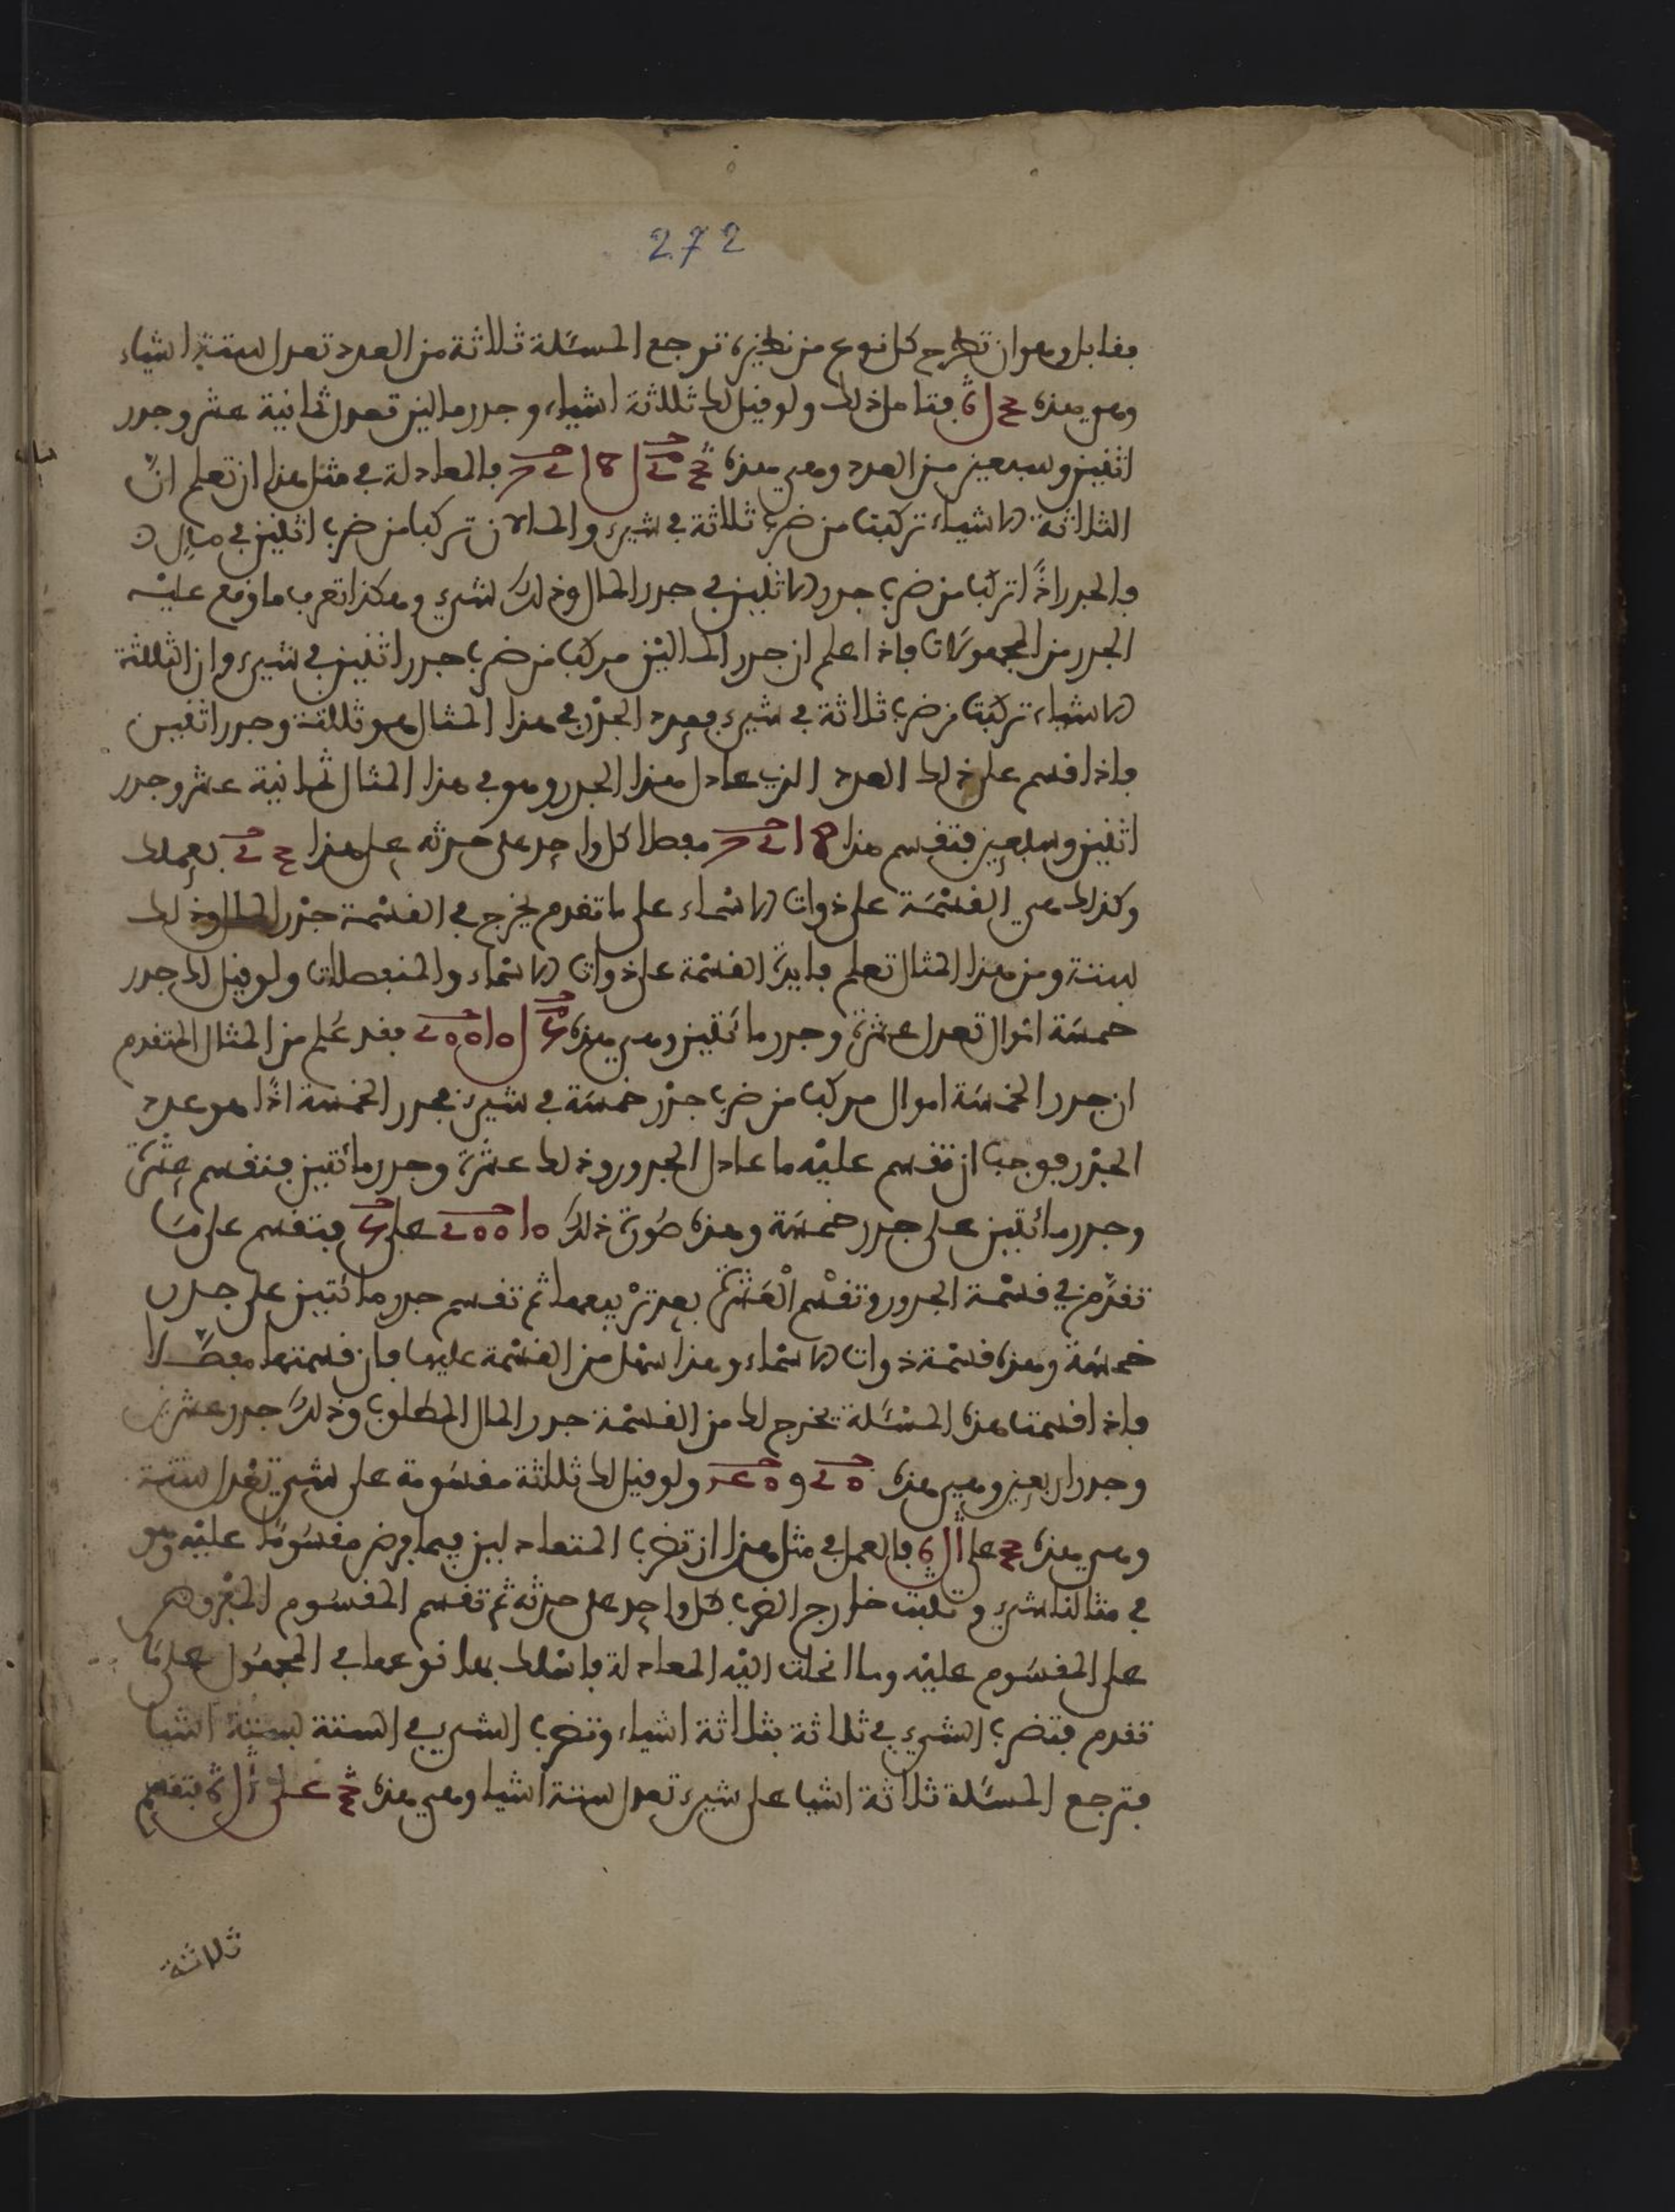 272
فقابل وهو ان تطرح كل نوع من نظيره ترجع المسئلة ثلاثة من العدد تعدل ستة اشياء
وهي هذه فتامل ذلك ولو قيل لك ثلثة اشياء وجذر مالين تعدل ثمانية عشر وجذر
اثنين وسبعين من العدد وهي هذه فالمعادلة في مثل هذا ان تعلم انّ
الثلاثة الاشياء تركبت من ضرب ثلاثة في شيء والمالان تركبا من ضرب اثنين في مال
فالجذر اذًا تركب من ضرب جذر الاثنين في جذر المال وذلك شيء وهكذا تعرف ما وقع عليه
الجذر من المجهولات فاذا علم ان جذر المالين مركب من ضرب جذر اثنين في شيء وان الثلثة
الاشياء تركبت من ضرب ثلاثة في شيء فعدد الجذر في هذا المثال هو ثلثة وجذر اثنين
فاذا قسم على ذلك العدد الذي عادل هذا الجذر وهو في هذا المثال ثمانية عشر وجذر
اثنين وسبعين فتقسم هذا مفصلا كل واحد على حدته على هذا بعملك
وكذلك هي القسْمَة على ذوات الاسماء على ما تقدم يخرج في القسْمة جذر المال وذلك
ستة ومن هذا المثال تعلم فايدة القسْمة على ذوات الاسْماء والمنفصلات ولو قيل لك جذر
خمسَة اموال تعدل عشرة وجذر مائتين وهي هذه فقد عُلم من المثال المتقدم
ان جذر الخمسَة اموال مركب من ضرب جذر خمسَة في شيء فجذر الخمسَة اذًا هو عدد
الجذر فوجب ان تقسم عليْه ما عادل الجذور وذلك عشرة وجذر مائتين فتقسم عشرة
وجذر مائتين على جذر خمسَة وهذه صُورة ذلك على فتقسم على مَا
تقدَّم في قسْمة الجذور وتقسْم الْعَشرة بعد ترْبيعها ثم تقسم جذر مائتين على جذر
خمسَة وهذه قسْمة ذوات الاسْماء وهذا اسْهل من القسْمة عليها فان قسمتها مفصّلا
فاذا قسمت هذه المسْئَلة يخرج لك من القسْمة جذر المال المطلوب وذلك جذر عشرين
وجذر اربعين وهي هذه و ولو قيل لك ثلثة مقسُومة على شيء تعْدل ستة
وهي هذه على فالعمل في مثل هذا ان تضرب المتعادلين فيما فرض مقسُومًا عليْه وهو
في مثالنا شيء وتثبت خارج الضرب كل واحد على حدته ثم تقسم المقسُوم المفروض
على المقسُوم عليْه وما انحلت اليْه المعادلة فاسْلك بها نوعها في المجهُول على مَا
تقدم فتضرب الشيء في ثلاثة بثلاثة اشياء وتضرب الشيء في الستة بستة اشيا
فترجع المسئلة ثلاثة اشيا على شيء تعدل ستة اشيا وهي هذه على فتقسم
ثلاثة